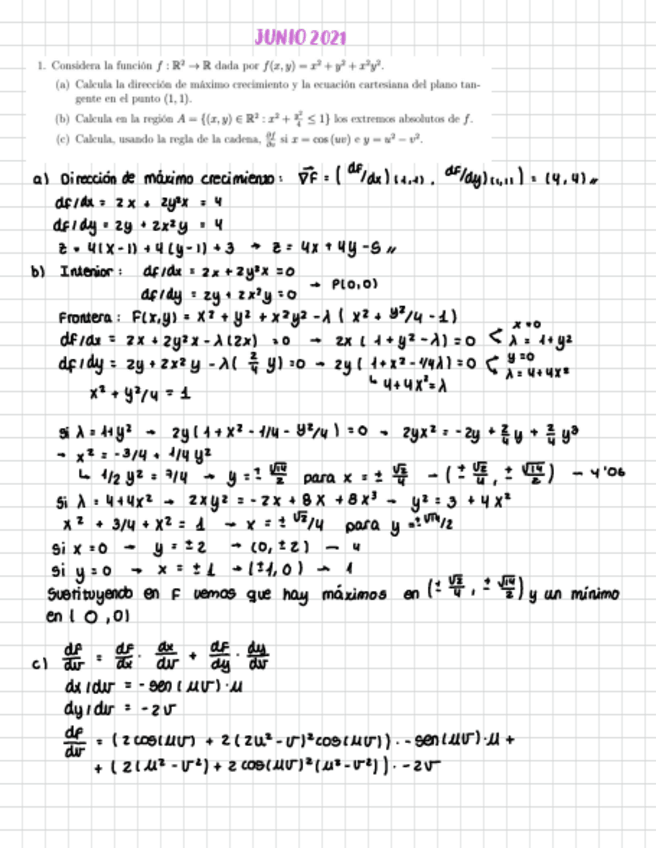 JUNIO 2021
1. Considera la función f : ℝ² → ℝ dada por f(x, y) = x² + y² + x²y².
(a) Calcula la dirección de máximo crecimiento y la ecuación cartesiana del plano tan-
gente en el punto (1, 1).
(b) Calcula en la región A = {(x, y) ∈ ℝ² : x² + y²/4 ≤ 1} los extremos absolutos de f.
(c) Calcula, usando la regla de la cadena, ∂f/∂v si x = cos (uv) e y = u² − v².
a) Dirección de máximo crecimiento : ∇F = ( df/dx)(1,1) , df/dy)(1,1) ) = (4,4)〃
df/dx = 2x + 2y²x = 4
df/dy = 2y + 2x²y = 4
z = 4(x-1) + 4(y-1) + 3 → z = 4x + 4y - 5 〃
b) Interior : df/dx = 2x + 2y²x = 0
df/dy = 2y + 2x²y = 0 → P(0,0)
Frontera : F(x,y) = x² + y² + x²y² - λ ( x² + y²/4 - 1)
df/dx = 2x + 2y²x - λ(2x) = 0 → 2x ( 1 + y² - λ) = 0 < x = 0 λ = 1 + y²
df/dy = 2y + 2x²y - λ( 2/4 y) = 0 → 2y ( 1 + x² - 1/4λ) = 0 < y = 0 λ = 4 + 4x²
↳ 4 + 4x² = λ
x² + y²/4 = 1
Si λ = 1+y² → 2y ( 1 + x² - 1/4 - y²/4 ) = 0 → 2yx² = -2y + 2/4 y + 2/4 y³
→ x² = -3/4 + 1/4 y²
↳ 1/2 y² = 7/4 → y = ± √14/2 para x = ± √2/4 → (± √2/4 , ± √14/2) → 4'06
Si λ = 4+4x² → 2xy² = -2x + 8x + 8x³ → y² = 3 + 4x²
x² + 3/4 + x² = 1 → x = ± √2/4 para y = ± √14/2
Si x = 0 → y = ± 2 → (0, ±2) → 4
Si y = 0 → x = ± 1 → (±1, 0) → 1
Sustituyendo en F vemos que hay máximos en (± √2/4 , ± √14/2) y un mínimo
en ( 0 , 0)
c) df/dv = df/dx · dx/dv + df/dy · dy/dv
dx/dv = -sen(uv) · u
dy/dv = -2v
df/dv = (2cos(uv) + 2(2u² - v)² cos(uv)) · -sen(uv) · u +
+ ( 2(u² - v²) + 2 cos(uv)² (u² - v²) ) · -2v